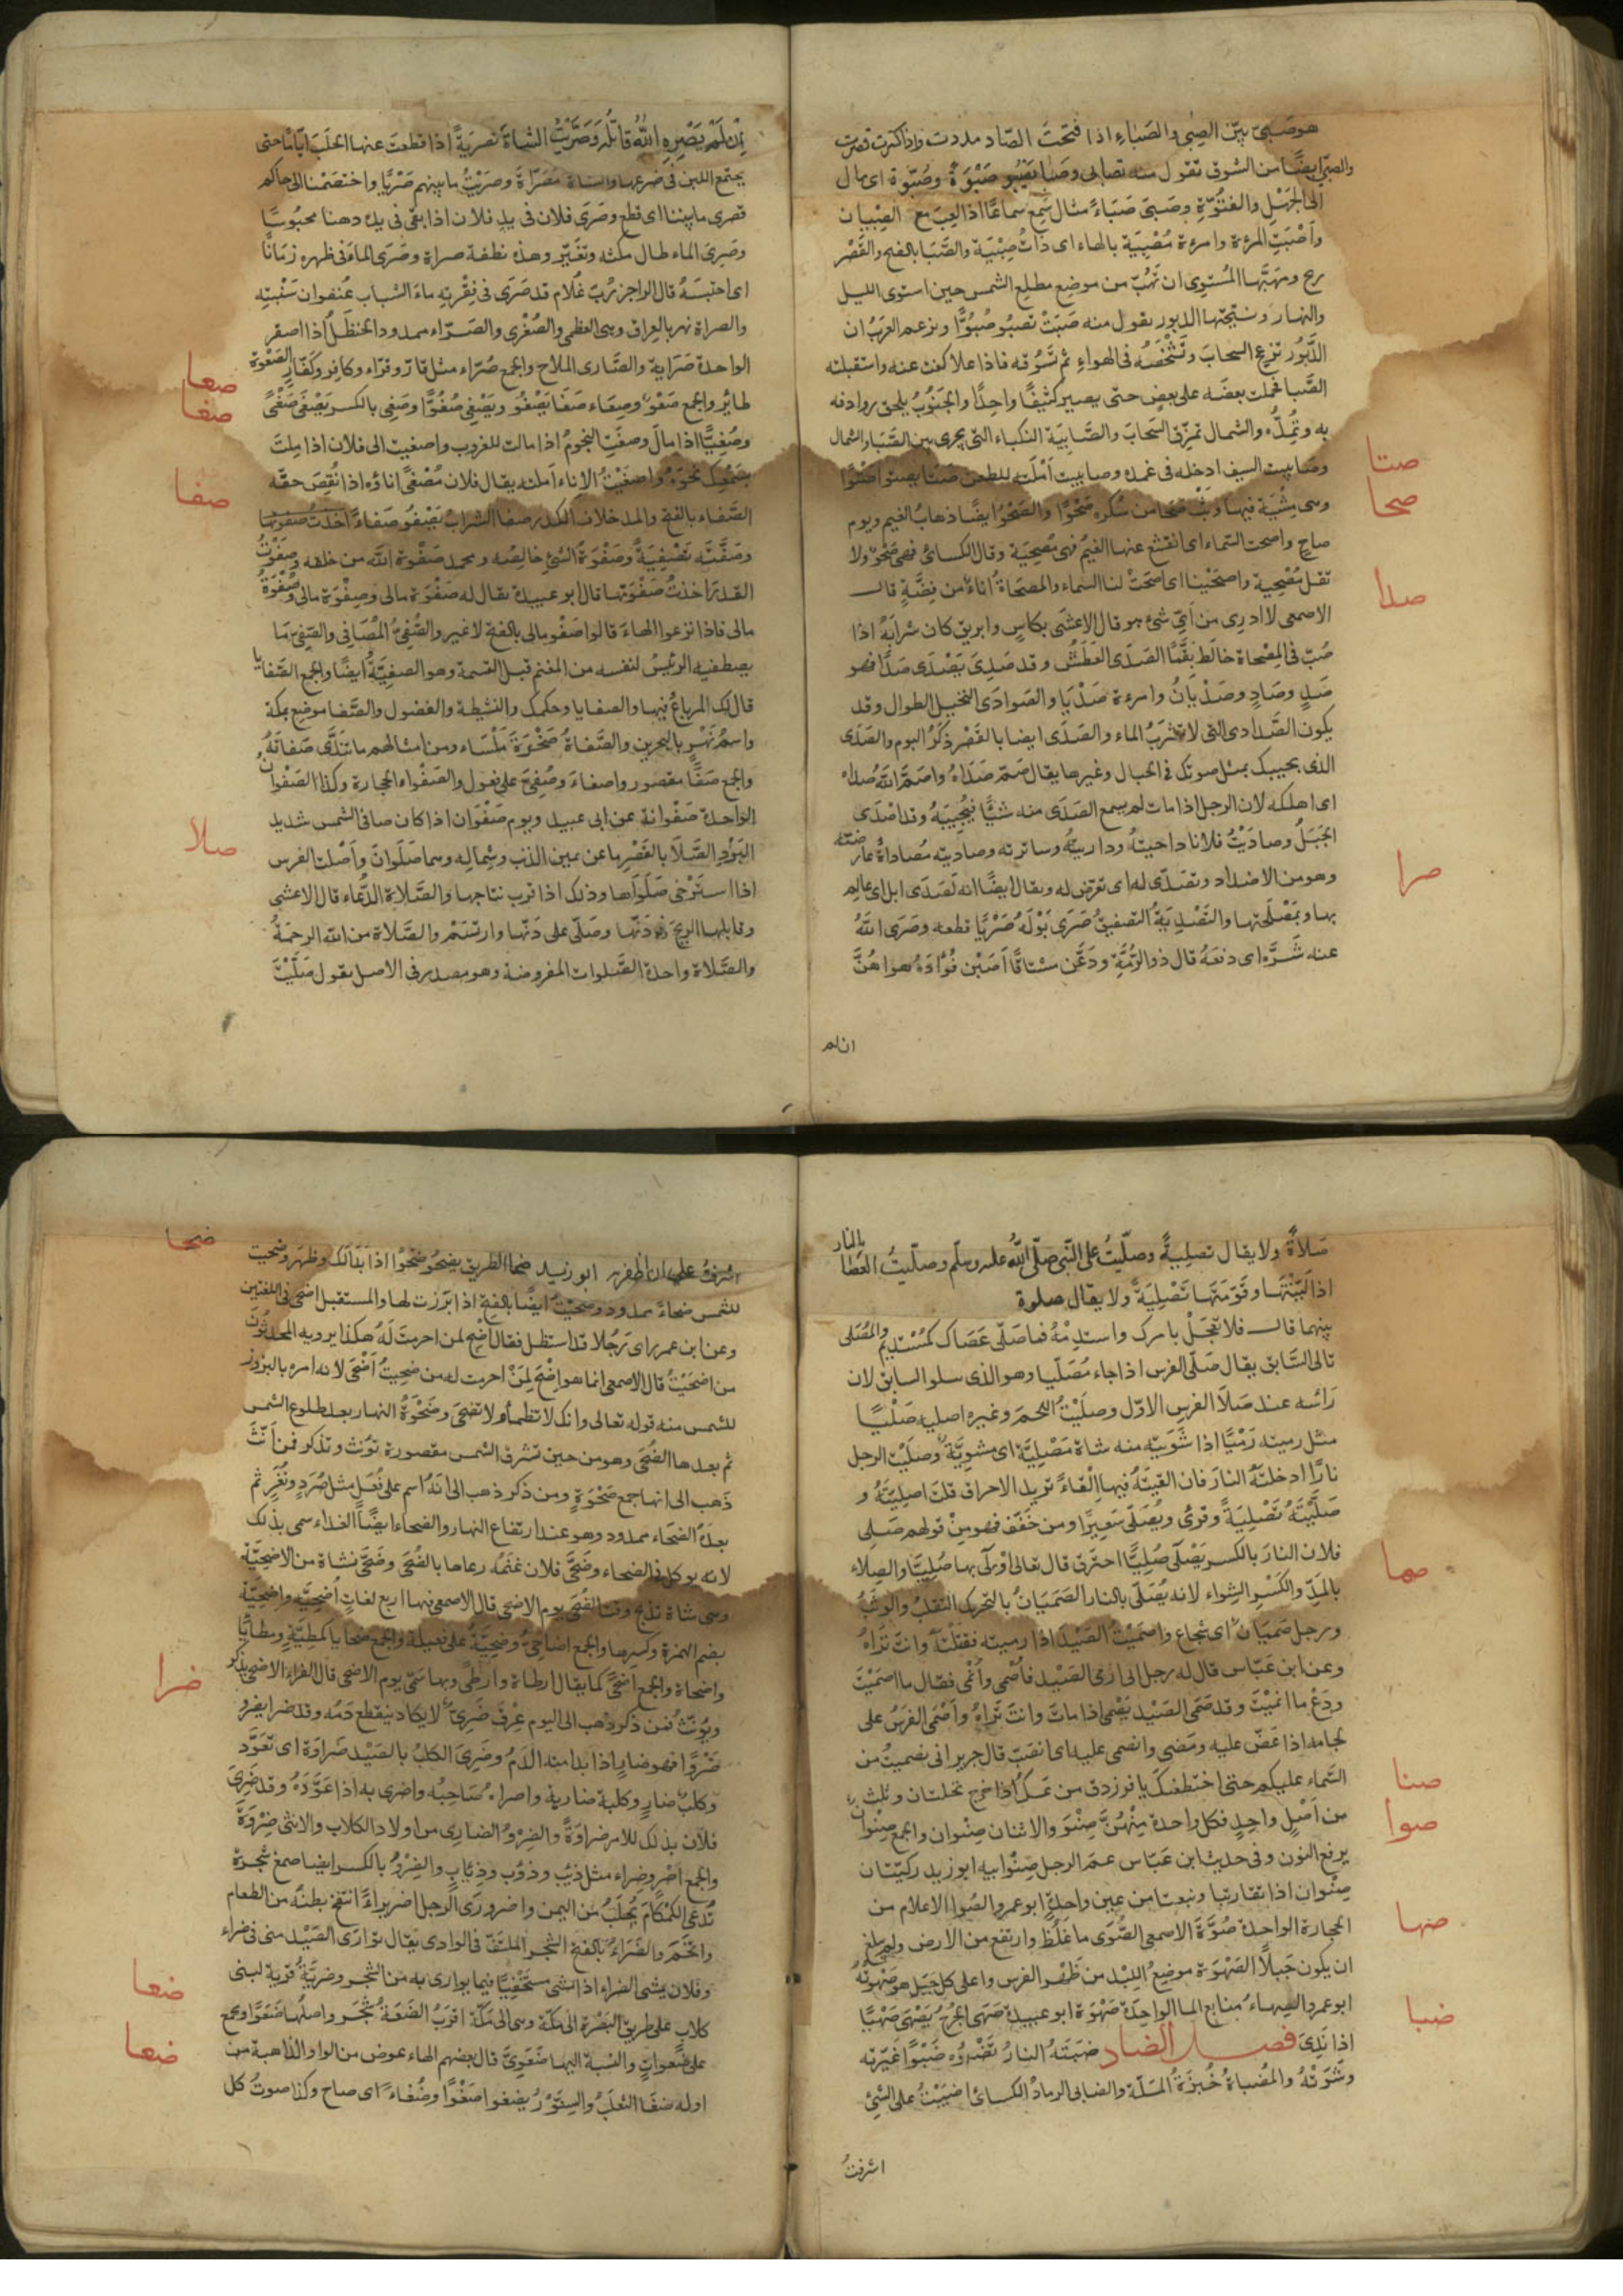 هو صَبيّ بيّن الصِبى والصَباءِ اذا فَتَحتَ الصّاد مددت واذا كسرت قصرت
والصبى ايضًا من الشوق تقول منه تصابى وصَبا يَصْبُو صَبْوَةً وصُبوّة اى مال
الى الجَهْلِ والفتُوّةِ وصَبىَ صَبَاءً مثال سَمِع سماعًا اذا لعِبَ مع الصِبْيان
وأصْبَتِ المرءة وامرءة مُصْبِيَة بالهاء اى ذاتُ صِبْيَة والصَّبَا بالفتح والقَصْر
ريح ومَهَبّها المُستوى ان تَهُبّ من موضع مطلع الشمس حين استوى الليل
والنهار ونيّحتها الدبور تقول منه صَبَتْ تصبُو صُبُوًّا وتزعم العربُ ان
الدَّبُور تزعج السحابَ وتُشْخِصُه فى الهواءِ ثم تَسُوقه فاذا علا كشفت عنه واستقبلته
الصَّبا فحملت بعضَه على بعضٍ حتّى يصير كِثيفًا واحِدًا والجَنُوبُ يلحق روادفه
به وتُمِدُّه والشمال تمزّق السَحابَ والصَّابِيَة النكباء التى يجرى بين الصَّبَا والشمال
صتا
وصَابيت السيف ادخله فى غمده وصابيت أمَلْته للطعن صَتَا يصتو اصَتْوًا
صحا
وهى مِشْيَة فيها وَثْبٌ صَحَا من سُكره صَحْوًا والصَحْوُ ايضًا ذهابُ الغيم ويوم
صاحٍ واصحت السّماء اى انقشع عنها الغَيْمُ فهى مُصْحِيَة وقال الكسائى فهى صَحْوٌ ولا
تقل مُصْحِية واصحَيْنا اى اصَحَتْ لنا السماء والمصحَاةُ اناءٌ من فِضَّةٍ قال
صدا
الاصمعى لا ادرى من أىّ شئ هو قال الاعشى بكاسٍ وابريق كان شرابَهُ اذا
صُبّ فى المِصْحاة خالَطَ بَقَّمَا الصَدَى العَطَشُ وقد صَدِىَ يَصْدَى صَدًا فهو
صَدٍ وصَادٍ وصَدْيَانُ وامرءة صَدْيَا والصَوادى النخيل الطوال وقد
يكون الصَّوادى التى لا تَشرَبُ الماء والصَدَى ايضا بالقَصْر ذكَرُ البوم والصَدَى
الذى يجيبك بمثل صوتك فى الجبال وغيرها يقال صَمّ صَدَاهُ واصَمَّ اللّٰه صُداه
اى اهلكه لان الرجل اذا مات لم يسمع الصَدَى منه شَيْئًا فيُجِيبَهُ وقد اصْدَى
الجَبَلُ وصادَيْتُ فلانا داجيتُه وداريتُه وساترته وصاديته مُصاداةً عارضته
صرا
وهو من الاضداد وتصدّى له اى تعرّض له ويقال ايضًا انه لَصَدَى ابل اى عالِم
بها وبمَصْلَحتها والتَصْدِيَةُ التصفيقُ صَرَى بَوْلَهُ صَرْيًا قطعه وصَرَى اللّٰهُ
عنه شَرَّه اى دفعَهُ قال ذو الرُمَّة ودَعَّن مشتاقًا أصَبْن فُؤَادَهُ هواهُنَّ
ان لم
اِنْ لَمْ يَصْرِهِ اللّٰهُ قاتلُه وَصَرَّيْتُ الشاةَ تصرِيَةً اذا قطعتَ عنها الحَلَبَ ايّامًا حتى
يجتمع اللبن فى ضرعها والشاة مُصَرّاةٌ وصَرَيْتُ ما بينهم صَرْيًا واختصَمْنا الى حاكم
فصرى ما بيننا اى قطع وصَرَى فلان فى يدِ فلان اذا بقى فى يده رهنا محبُوسًا
وصَرِىَ الماء طال مكثه وتغيّر وهذه نطفة صراة وصَرَى الماءَ فى ظهره زمَانًا
اى احتبسَهُ قال الراجز رُبّ غُلام قد صَرَى فى فِقْرتِه ماءَ الشَبابِ عُنفوان سَنْبتِه
والصراة نهر بالعِراق وهى العظمى والصُغْرى والصَرّاء ممدود الحَنظلُ اذا اصفر
صعا
الواحدة صَرَاية والصَّارى الملاح والجمع صُرّاء مثل قارٍ وقرّاء وكافِر وكُفّارٍ الصَعْوَة
صغا
طائر والجمع صَعْوٌ وصِعَاء صَغَا يَصْغُو ويَصْغى صُغُوًّا وصَغِى بالكسر يَصْغَى صَغًى
وصُغِيًّا اذا مالَ وصغَتِ النجُومُ اذا مالت للغروب واصغيت الى فلان اذا مِلتَ
صفا
بسَمْعِك نَحْوَهُ واصغَيْتُ الاناء أملته يقال فلان مُصْغًى اناؤه اذا نُقِصَ حقّه
الصَّفاء بالفتح والمد خلاف الكدر صفا الشرابُ يَصْفُو صَفاءً اخذتُ صفوتها
وصَفَّيتُه تَصْفِيَةً وصَفْوَةُ الشئِ خالِصُه ومحمد صَفْوة اللّٰه من خلقه وصَفَوْتُ
القِدرَ اخذتُ صَفْوَتها قال ابو عبيدة يقال له صَفْوَة مالى وصِفْوَة مالى وصُفْوَةُ
مالى فاذا نزعوا الهاءَ قالوا صَفْو مالى بالفتح لا غير والصَّفىُّ المُصَافى والصَفِىّ ما
يصطفيه الرئيسُ لنفسه من المغنم قبل القسمة وهو الصفِيَّةُ ايضًا والجمع الصَفايا
قال لك المرباعُ فيها والصفايا وحكمك والنشيطة والفضول والصَّفا موضع بمكة
واسمُ نَهْرٍ بالبحرين والصَّفاةُ صَخْرَةَ مَلْسَاء ومن امثالهم ما تندّى صَفاتُهُ
والجمع صَفًا مقصور واصفاءَ وصُفِىّ على فعول والصَفْواء الحجارة وكذا الصَفْوان
صلا
الواحدة صَفْوانة عن ابى عبيد ويوم صَفْوَان اذا كان صافى الشمس شديد
البَرْدِ الصَّلَا بالقَصْرِ ما عن يمين الذنب وشِماله وهما صَلَوان وأصْلت الفرس
اذا استَرْخى صَلَوَاها وذلك اذا قرب نتاجها والصَّلاةِ الدُعاء قال الاعشى
وقابلها الريحَ فى دَنّها وصَلّى على دَنّها وارتسَم والصَّلاة من اللّٰه الرحمَةُ
والصَّلاة واحدة الصَّلوات المفروضة وهو مصدر فى الاصل تقول صَلَّيْتُ
صَلاةً ولا يقال تصلِيةً وصلّيتُ على النَّبى صلّى اللّٰه عليه وسلّم وصلّيتُ العَصَا بالنار
اذا لَيّنْتَها وقَوّمتَها تَصْلِيَةً ولا يقال صلوة
بينهما قال فلا تعْجَلْ بامرك واستدِمْهُ فما صَلّى عَصَاكَ كمُسْتَدِيمٍ والمُصَلى
تالى السَّابق يقال صَلّى الفرس اذا جاء مُصَلّيا وهو الذى يتلو السابق لان
رَأسَه عند صَلَا الفرسِ الاوّل وصلَيْتُ اللحمَ وغيره اصليه صَلْيًا
مثل رميته رَمْيًا اذا شَوَيتَه منه شاة مَصْلِيَّة اى مشوِيَّة وصَلَيْتُ الرجل
نارًا ادخلتَهُ النارَ فان القيتَهُ فيها اِلقاءً تريد الاحراق قلتَ اصليتَهُ و
صَلّيْتَهُ تَصْلِيَةً وقرئ ويُصَلّى سَعِيرًا ومن خَفّف فهو مِنْ قولهم صَلِى
صما
فلان النارَ بالكسر يَصْلَى صُلِيًّا احترق قال تعالى أوْلَى بها صُلِيًّا والصِلاء
بالمَدّ والكَسْرِ الشِواء لانه يُصَلّى بالنار الصَمَيَانُ بالتحريك التقلب والوثبُ
ورجل صَمَيَان اى شجاع واصمَيْتُ الصَيْدَ اذا رميته فقتلْتَه وانت تَرَاهُ
وعن ابن عبّاس قال له رجل انى ارمى الصَيْد فأصْمى وأنْمى فقال ما اصمَيْتَ
ودَعْ ما انميْتَ وقد صَمَى الصَيْدُ يَصْمِى اذا ماتَ وانتَ تَراهُ وأصْمَى الفَرَسُ على
لجامه اذا عَضّ عليه ومَضى وانصمى عليه اى انصَبّ قال جرير انى انصميتُ من
صنا
السَّماء عليكم حتى اختطفتكَ يا فرزدق من عَلُ اذا خرج نخلتان وثلاث
صوا
من اَصْلٍ واحِدٍ فكل واحدة مِنْهُنَّ صِنْوَ والاثنان صِنْوان والجمع صِنْوان
برفع النون وفى حديث ابن عَبّاس عَمّ الرجل صِنْو ابيه ابو زيد ركيّتان
صِنْوان اذا تقاربتا ونبعتا من عين واحِدَةٍ ابو عمرو الصُوا الاعلام من
صها
الحِجارة الواحدة صُوَّةَ الاصمعى الصُوَى ما غَلُظ وارتفع من الارض ولم يبلغ
ان يكون جَبلًا الصَهْوَة موضِعُ اللِبْد من ظَهْر الفرس واعلى كل جَبَل صَهْوتُهُ
ضبا
ابو عمرو الصِهاءُ منابع الماء الواحِدَة صَهْوَة ابو عبيدة صَهِىَ الجُرْحُ يَصْهَى صَهْيًا
اذا نَدِىَ فصل الضاد ضبَتَهُ النارُ تَضْبُوه ضَبْوًا غيّرته
وشَوَتْهُ والمَضباةُ خُبْزَةُ المَلَّة والضابى الرمادُ الكسائى اضبَيْتُ على الشئِ
اشرفتُ
ضحا
اشرفتُ على ان اظفر به ابو زيد ضحا الطريق يضحُو ضَحْوًا اذا بَدَا لك وظهر وضحيت
للشمس ضحاءً ممدود وضحَيْتُ ايضًا بالفتح اذا بَرَزت لها والمستقبل اضحى فى اللغتين
وعن ابن عمر راى رَجُلا قد استظل فقال أضْحِ لمن احرمت لَهُ هكذا يرويه المحدثون
من اضحَيْتُ قال الاصمعى انما هو اِضْحَ لِمَنْ احرمت له من ضحِيتُ أضْحَى لانه امره بالبروز
للشمس منه قوله تعالى وانك لا تظمأ ولا تضحى وضَحْوَةُ النهار بعد طلوع الشمس
ثم بعدها الضُحَى وهو من حين تشرق الشمس مقصورة تؤنث وتذكر فمن أنّثَ
ذَهب الى انها جمع ضَحْوَةٍ ومن ذكر ذهب الى أنّهُ اسم على فُعَلٍ مثل صُرَدٍ ونُغَرٍ ثم
بعدَهُ الضحَاء ممدود وهو عند ارتفاع النهار والضحاء ايضًا الغداء سمى بذلك
لانه يوكل فى الضحاء وضَحَّى فلان غنَمَه رعاها بالضُحَى وضَحَّى بشاة من الاضحيّة
وهى شاة تذبح وقتَ الضُحَى يوم الاضحى قال الاصمعى فيها اربع لغاتٍ اُضحِيَّة واِضحِيّة
بضم الهمزة وكسرها والجمع اضاحِىُّ وضحِيَّةُ على فعيلة والجمع ضَحايا كمَطِيَّةٍ ومطايَا
ضرا
واضحاة والجمع أضحًى كما يقال ارطاة وأرْطًى وبها سَمّى يوم الاضحى قال الفراء الاضحى يذكر
ويؤنّثُ فمن ذكر ذهب الى اليوم عِرْق ضَرِىٌّ لا يكاد ينقطع دَمُه وقد ضرا يضرو
ضَرْوًا فهو ضارٍ اذا بدا منه الدَمُ وضَرِىَ الكلبُ بالصَيْد ضَراوة اى تعَوَّد
وكلبٌ ضارٍ وكلبة ضارية واضراهُ صَاحِبُه واضرى به اذا عَوّدَهُ وقد ضَرِىَ
فلان بذلك للامر ضراوَةً والضِرْوُ الضارِى من اولاد الكلاب والانثى ضِرْوَةٌ
والجمع اَضْرٍ وضِراء مثل ذئب وذؤب وذِئابٍ والضِرْوُ بالكسر ايضا صمغ شجرة
تُدعَى الكَمْكامَ يُجلَبُ من اليمن واضرورى الرجل اضريراءً انتفخ بطنُه من الطعام
واتخَمَ والضَراءُ بالفتح الشجر الملتفّ فى الوادى يقال توارى الصَيْد منى فى ضراء
ضعا
وفلان يمشى الضراء اذا مشى مستخفيًا فيما يوارى به من الشجر وضريَّةُ قرية لبنى
كلاب على طريق البَصْرة الى مكّة وهى الى مَكّة اقرَبُ الضَعَةُ شَجَر واصلها ضَعَوٌ ويجمع
ضغا
على ضَعَواتٍ والنسبة اليها ضَعَوِىّ قال بعضهم الهاء عوض من الواو الذاهبة من
اوله ضغَا الثعلَبُ والسِنَّوْرُ يضغو اضَغْوًا وضُغاءً اى صاح وكذا صوتُ كل